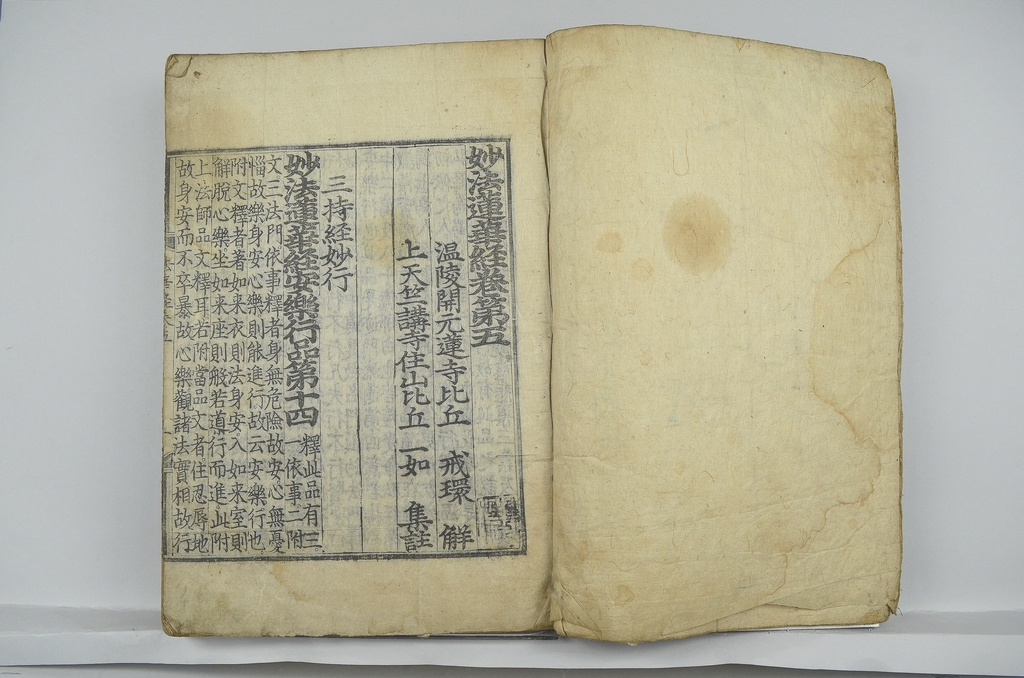 妙法蓮華経卷第五
温陵開元蓮寺比丘 戒環 解
上天竺講寺住山比丘 一如 集註
三持経妙行
妙法蓮華経安樂行品第十四
釋此品有三
一依事二附
文三法門依事釋者身無危險故安心無憂
惱故樂身安心樂則能進行故云安樂行也
附文釋者著如来衣則法身安入如来室則
解脱心樂坐如来座則般若導行而進此附
上法師品文釋耳若附當品文者住忍辱地
故身安而不卒暴故心樂觀諸法實相故行